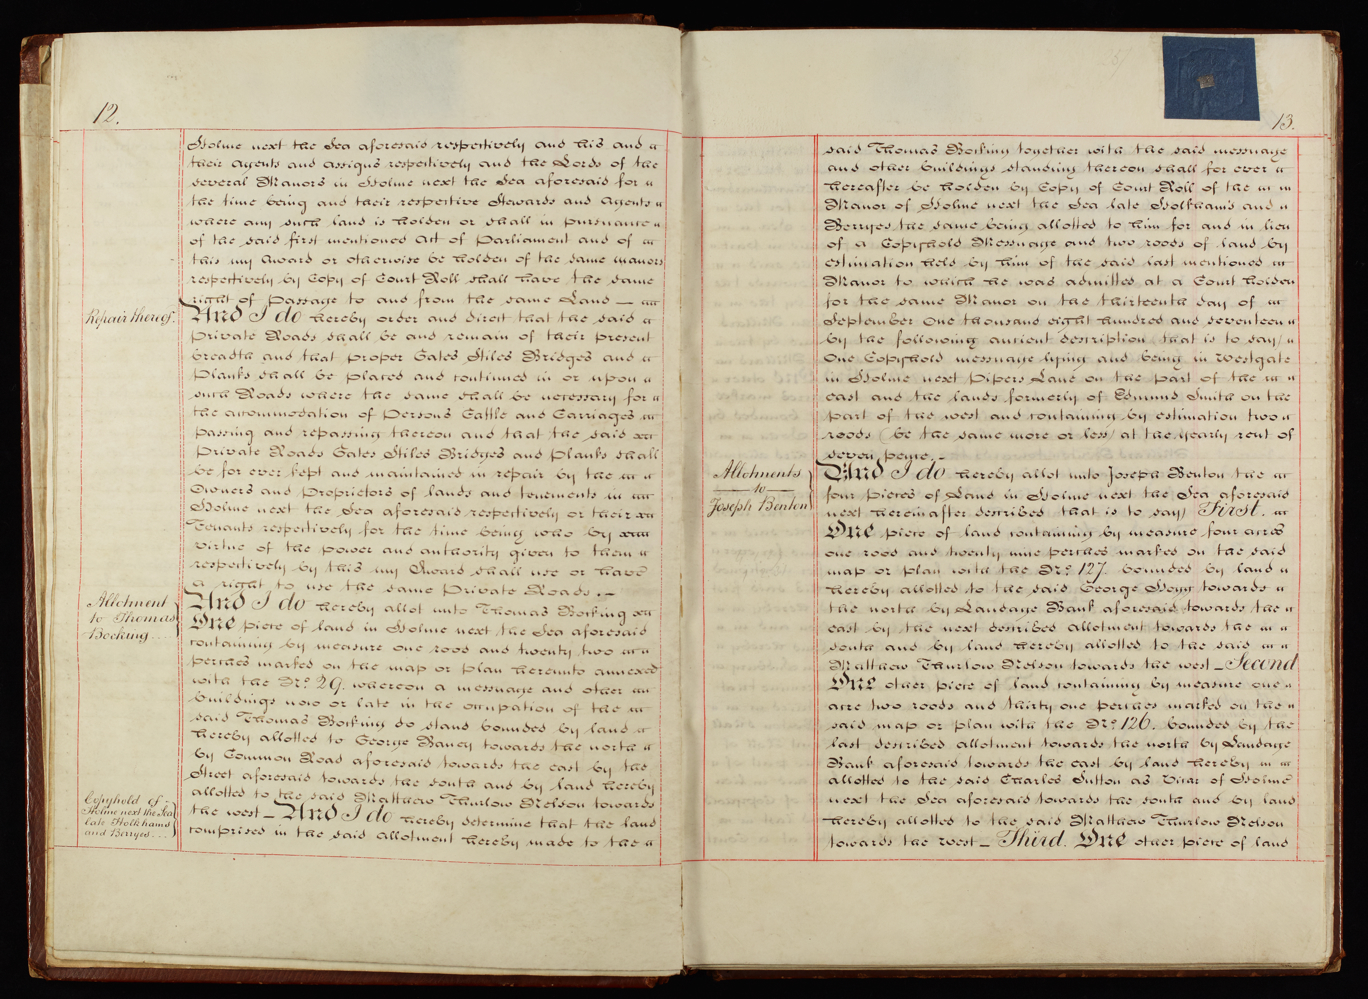 12.
Holme next the Sea aforesaid respectively and his and
their Agents and assigns respectively and the Lords of the
several Manors in Holme next the Sea aforesaid for
the time being and their respective Stewards and Agents
where any such land is holden or shall in pursuance
of the said first mentioned Act of Parliament and of
this my Award or otherwise be holden of the same manors
respectively by Copy of Court Roll shall have the same
right of passage to and from the same Land —
Repair thereof.
And I do hereby order and direct that the said
Private Roads shall be and remain of their present
breadth and that proper Gates Stiles Bridges and
Planks shall be placed and continued in or upon
such Roads where the same shall be necessary for
the accommodation of Persons Cattle and Carriages
passing and repassing thereon and that the said
Private Roads Gates Stiles Bridges and Planks shall
be for ever kept and maintained in repair by the
Owners and Proprietors of lands and tenements in
Holme next the Sea aforesaid respectively or their
Tenants respectively for the time being who by
virtue of the power and authority given to them
respectively by this my Award shall use or have
a right to use the same Private Roads . –
Allotment
to Thomas
Bocking....
And I do hereby allot unto Thomas Bocking
One piece of land in Holme next the Sea aforesaid
containing by measure one rood and twenty two
perches marked on the map or plan hereunto annexed
with the No. 29. whereon a messuage and other
buildings now or late in the occupation of the
said Thomas Bocking do stand bounded by land
hereby allotted to George Bancy towards the north
by Common Road aforesaid towards the east by the
Street aforesaid towards the south and by land hereby
allotted to the said Matthew Thurlow Nelson towards
Copyhold of
Holme next the Sea
late Holkhams
and Berryes....
the west – And I do hereby determine that the land
comprised in the said allotment hereby made to the
13.
said Thomas Bocking together with the said messuage
and other buildings standing thereon shall for ever
hereafter be holden by Copy of Court Roll of the
Manor of Holme next the Sea late Holkham's and
Berryes the same being allotted to him for and in lieu
of a Copyhold Messuage and two roods of land by
estimation held by him of the said last mentioned
Manor to which he was admitted at a Court holden
for the same Manor on the thirteenth day of
September One thousand eight hundred and seventeen
by the following ancient description (that is to say)
One Copyhold messuage lying and being in Westgate
in Holme next Pipers Lane on the part of the
east and the lands formerly of Edmund Smith on the
part of the west and containing by estimation two
roods (be the same more or less) at the yearly rent of
seven pence. –
Allotments
—to—
Joseph Benton
And I do hereby allot unto Joseph Benton the
four pieces of Land in Holme next the Sea aforesaid
next hereinafter described that is to say) First.
One piece of land containing by measure four acres
one rood and twenty nine perches marked on the said
map or plan with the No. 127. bounded by land
hereby allotted to the said George Hogg towards
the north by Landage Bank aforesaid towards the
east by the next described allotment towards the
south and by land hereby allotted to the said
Matthew Thurlow Nelson towards the west – Second
One other piece of land containing by measure one
acre two roods and thirty one perches marked on the
said map or plan with the No. 126. bounded by the
last described allotment towards the north by Landage
Bank aforesaid towards the east by land hereby
allotted to the said Charles Sutton as Vicar of Holme
next the Sea aforesaid towards the south and by land
hereby allotted to the said Matthew Thurlow Nelson
towards the west – Third. One other piece of land